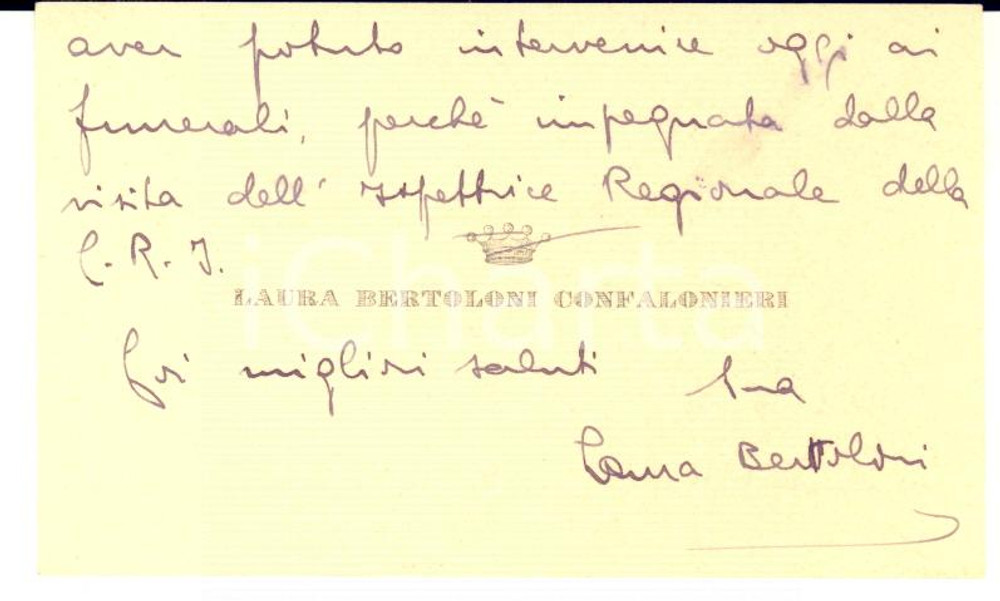 aver potuto intervenire oggi ai
funerali, perchè impegnata dalla
visita dell' Ispettrice Regionale della
C. R. I.
LAURA BERTOLONI CONFALONIERI
iCharta
Coi migliori saluti Sua
Laura Bertoloni